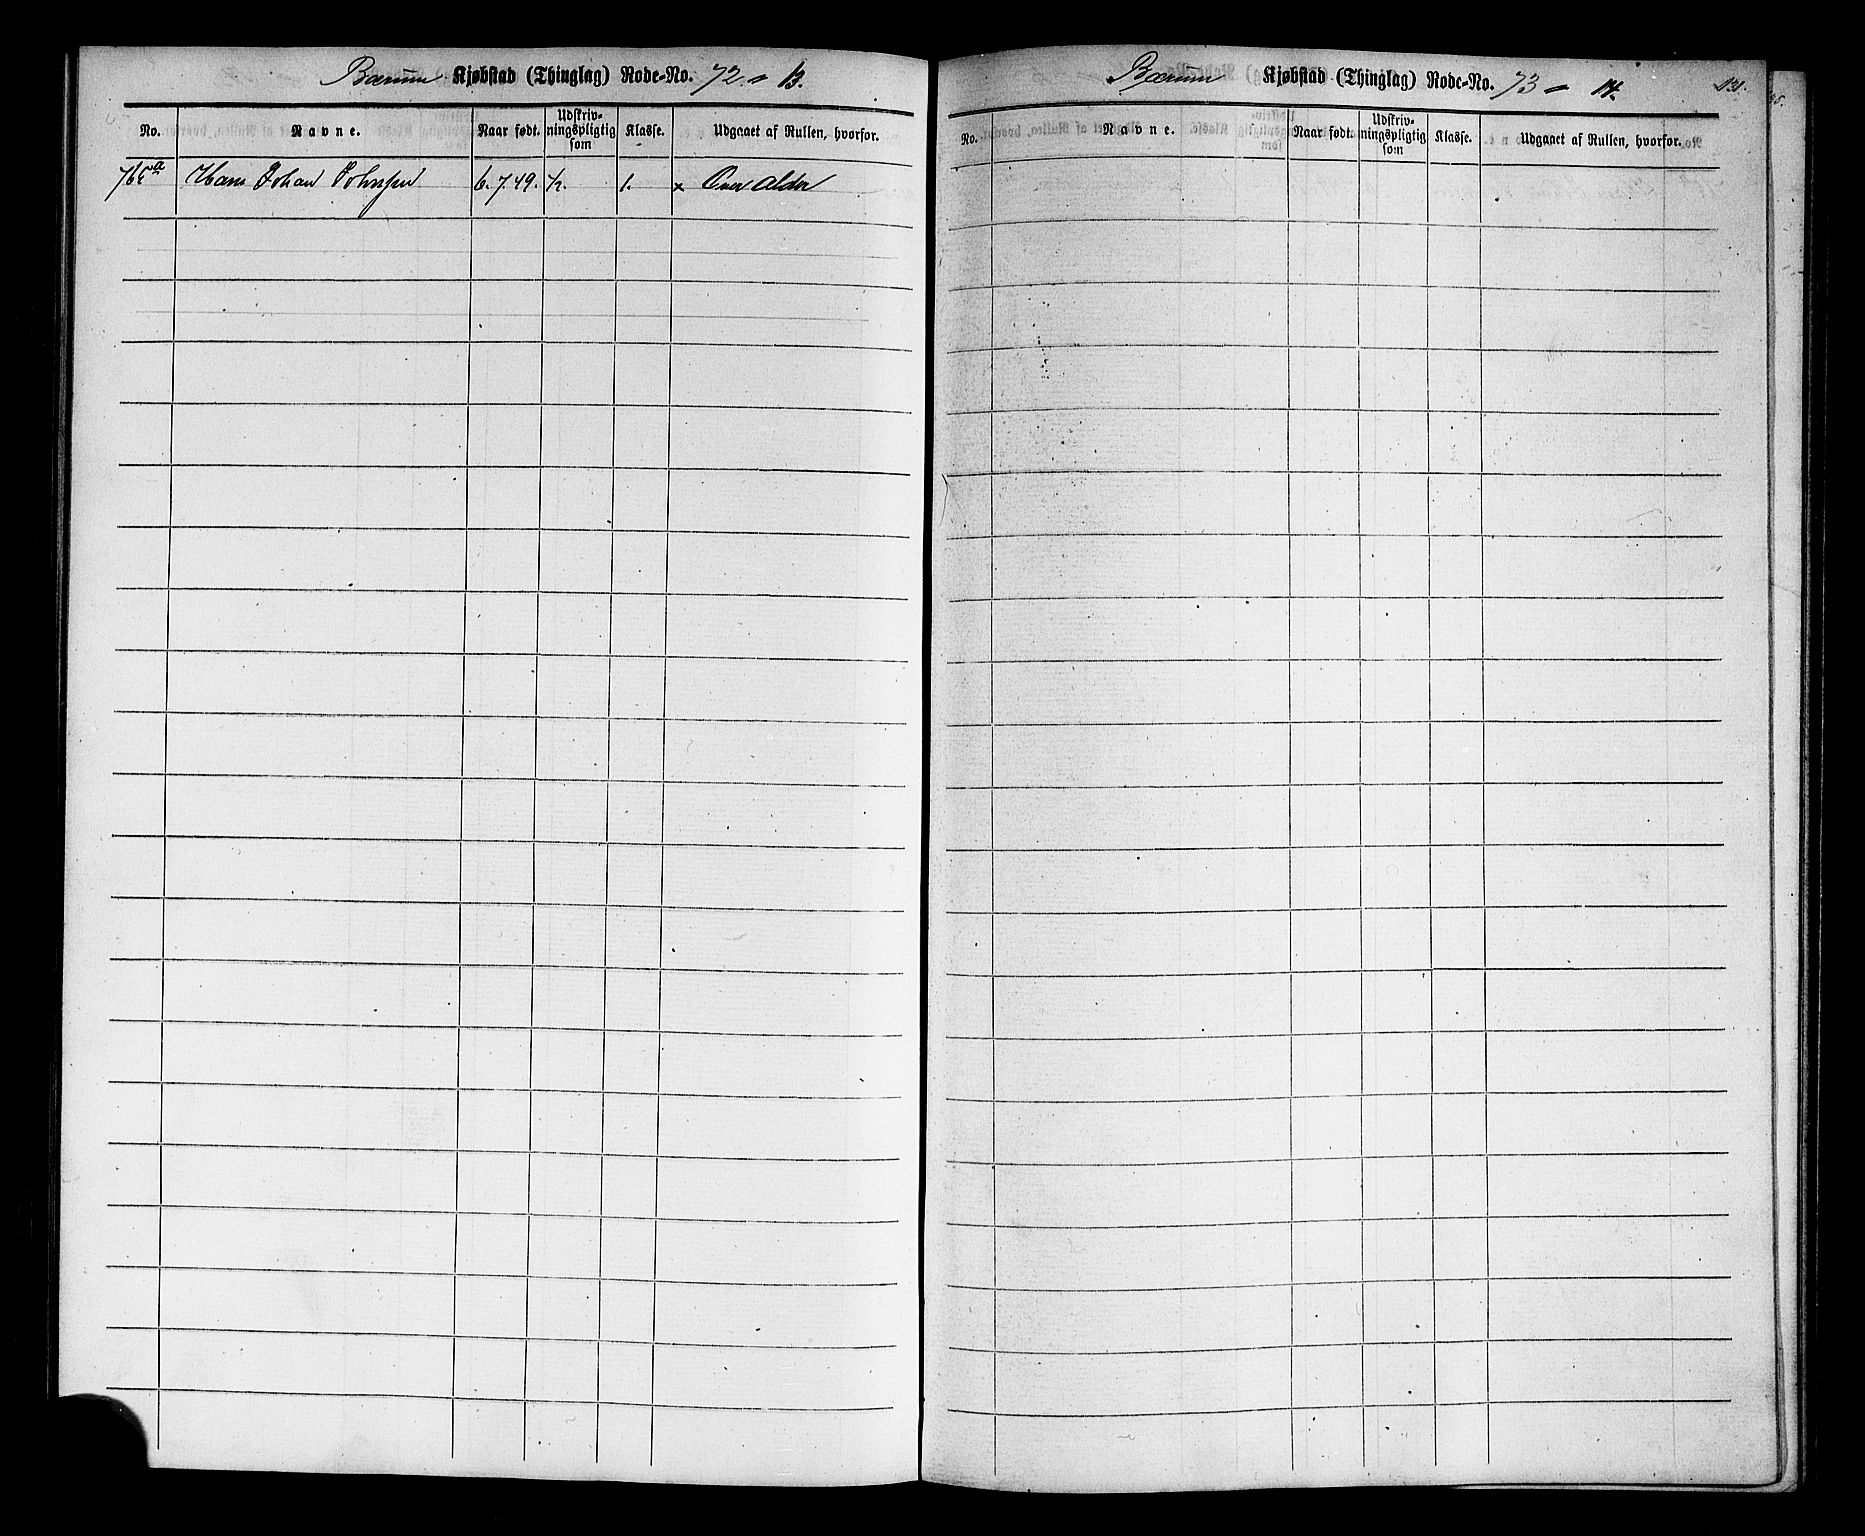 Bærum Kjøbstad (Thinglag) Rode-No. 72 " 13.
No. Navne. Naar født. Udskriv-ningspligtig som Klasse. Udgaaet af Rullen, hvorfor.
Hans Johan Johnsen 6.7.49. ½. 1. x Over Alder
Bærum Kjøbstad (Thinglag) Rode-No. 73 " 14. 131.
No. Navne. Naar født. Udskriv-ningspligtig som Klasse. Udgaaet af Rullen, hvorfor.